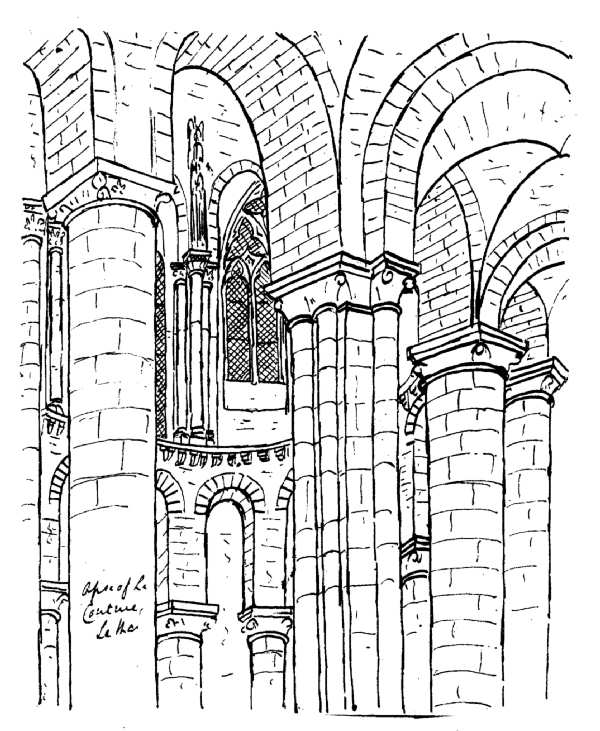 Apse of La
Couture,
Le Mans